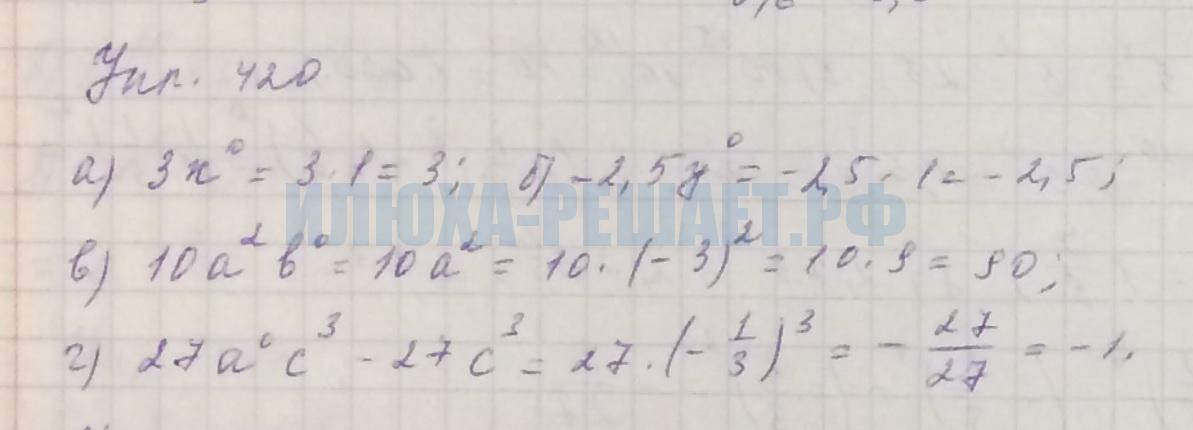 Упр. 420
а) 3x⁰ = 3 · 1 = 3; б) -2,5y⁰ = -2,5 · 1 = -2,5;
ИЛЮХА-РЕШАЕТ.РФ
в) 10a²b⁰ = 10a² = 10 · (-3)² = 10 · 9 = 90;
г) 27a⁰c³ - 27c³ = 27 · (-1/3)³ = - 27/27 = -1.